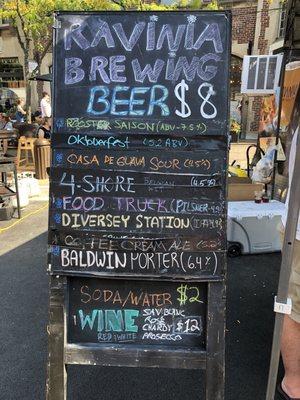 RAVINIA
BREWING
BEER $8
ROOSTER SAISON (ABV-7.5%)
Oktoberfest (5.2 ABV)
CASA DE GUAVA SOUR (4.5%
4-SHORE BELGIAN (4.5%
FOOD TRUCK (PILSNER
DIVERSEY STATION
COFFEE CREAM ALE (5.2
BALDWIN PORTER (6.4%)
SODA/WATER $2
WINE SAV BLANC
ROSÉ
CHARDY $12
RED & WHITE PROSECCO